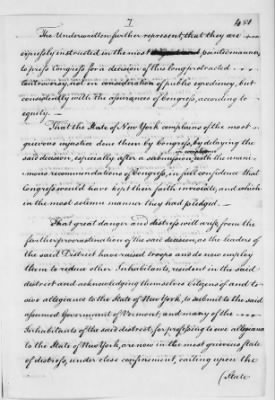 7
451
The Underwritten further represent, that they are
expressly instructed in the most pointed manner
to press Congress for a decision of this long protracted
controversy, not on consideration of public expediency, but
consistedly with the assurances of Congress, according to
equity.
That the State of New York complains of the most
grievous injustice done them by Congress, by delaying the
said decision, especially after a submission, with the unani-
mous recommendations of Congress, in full confidence that
Congress would have kept their faith inviolate, and which
in the most solemn manner they had pledged.
That great danger and distress will arise from the
farther procrastination of the said decision, as the leaders of
the said District have raised troops and do now employ
them to reduce other Inhabitants, resident in the said
district and acknowledging themselves Citizens of and to
owe allegiance to the State of New York, to submit to the said
assumed Government of Vermont; and many of the
Inhabitants of the said district, for professing to owe allegiance
to the State of New York, are now in the most grievous state
of distress, under close confinement, calling upon the
(State